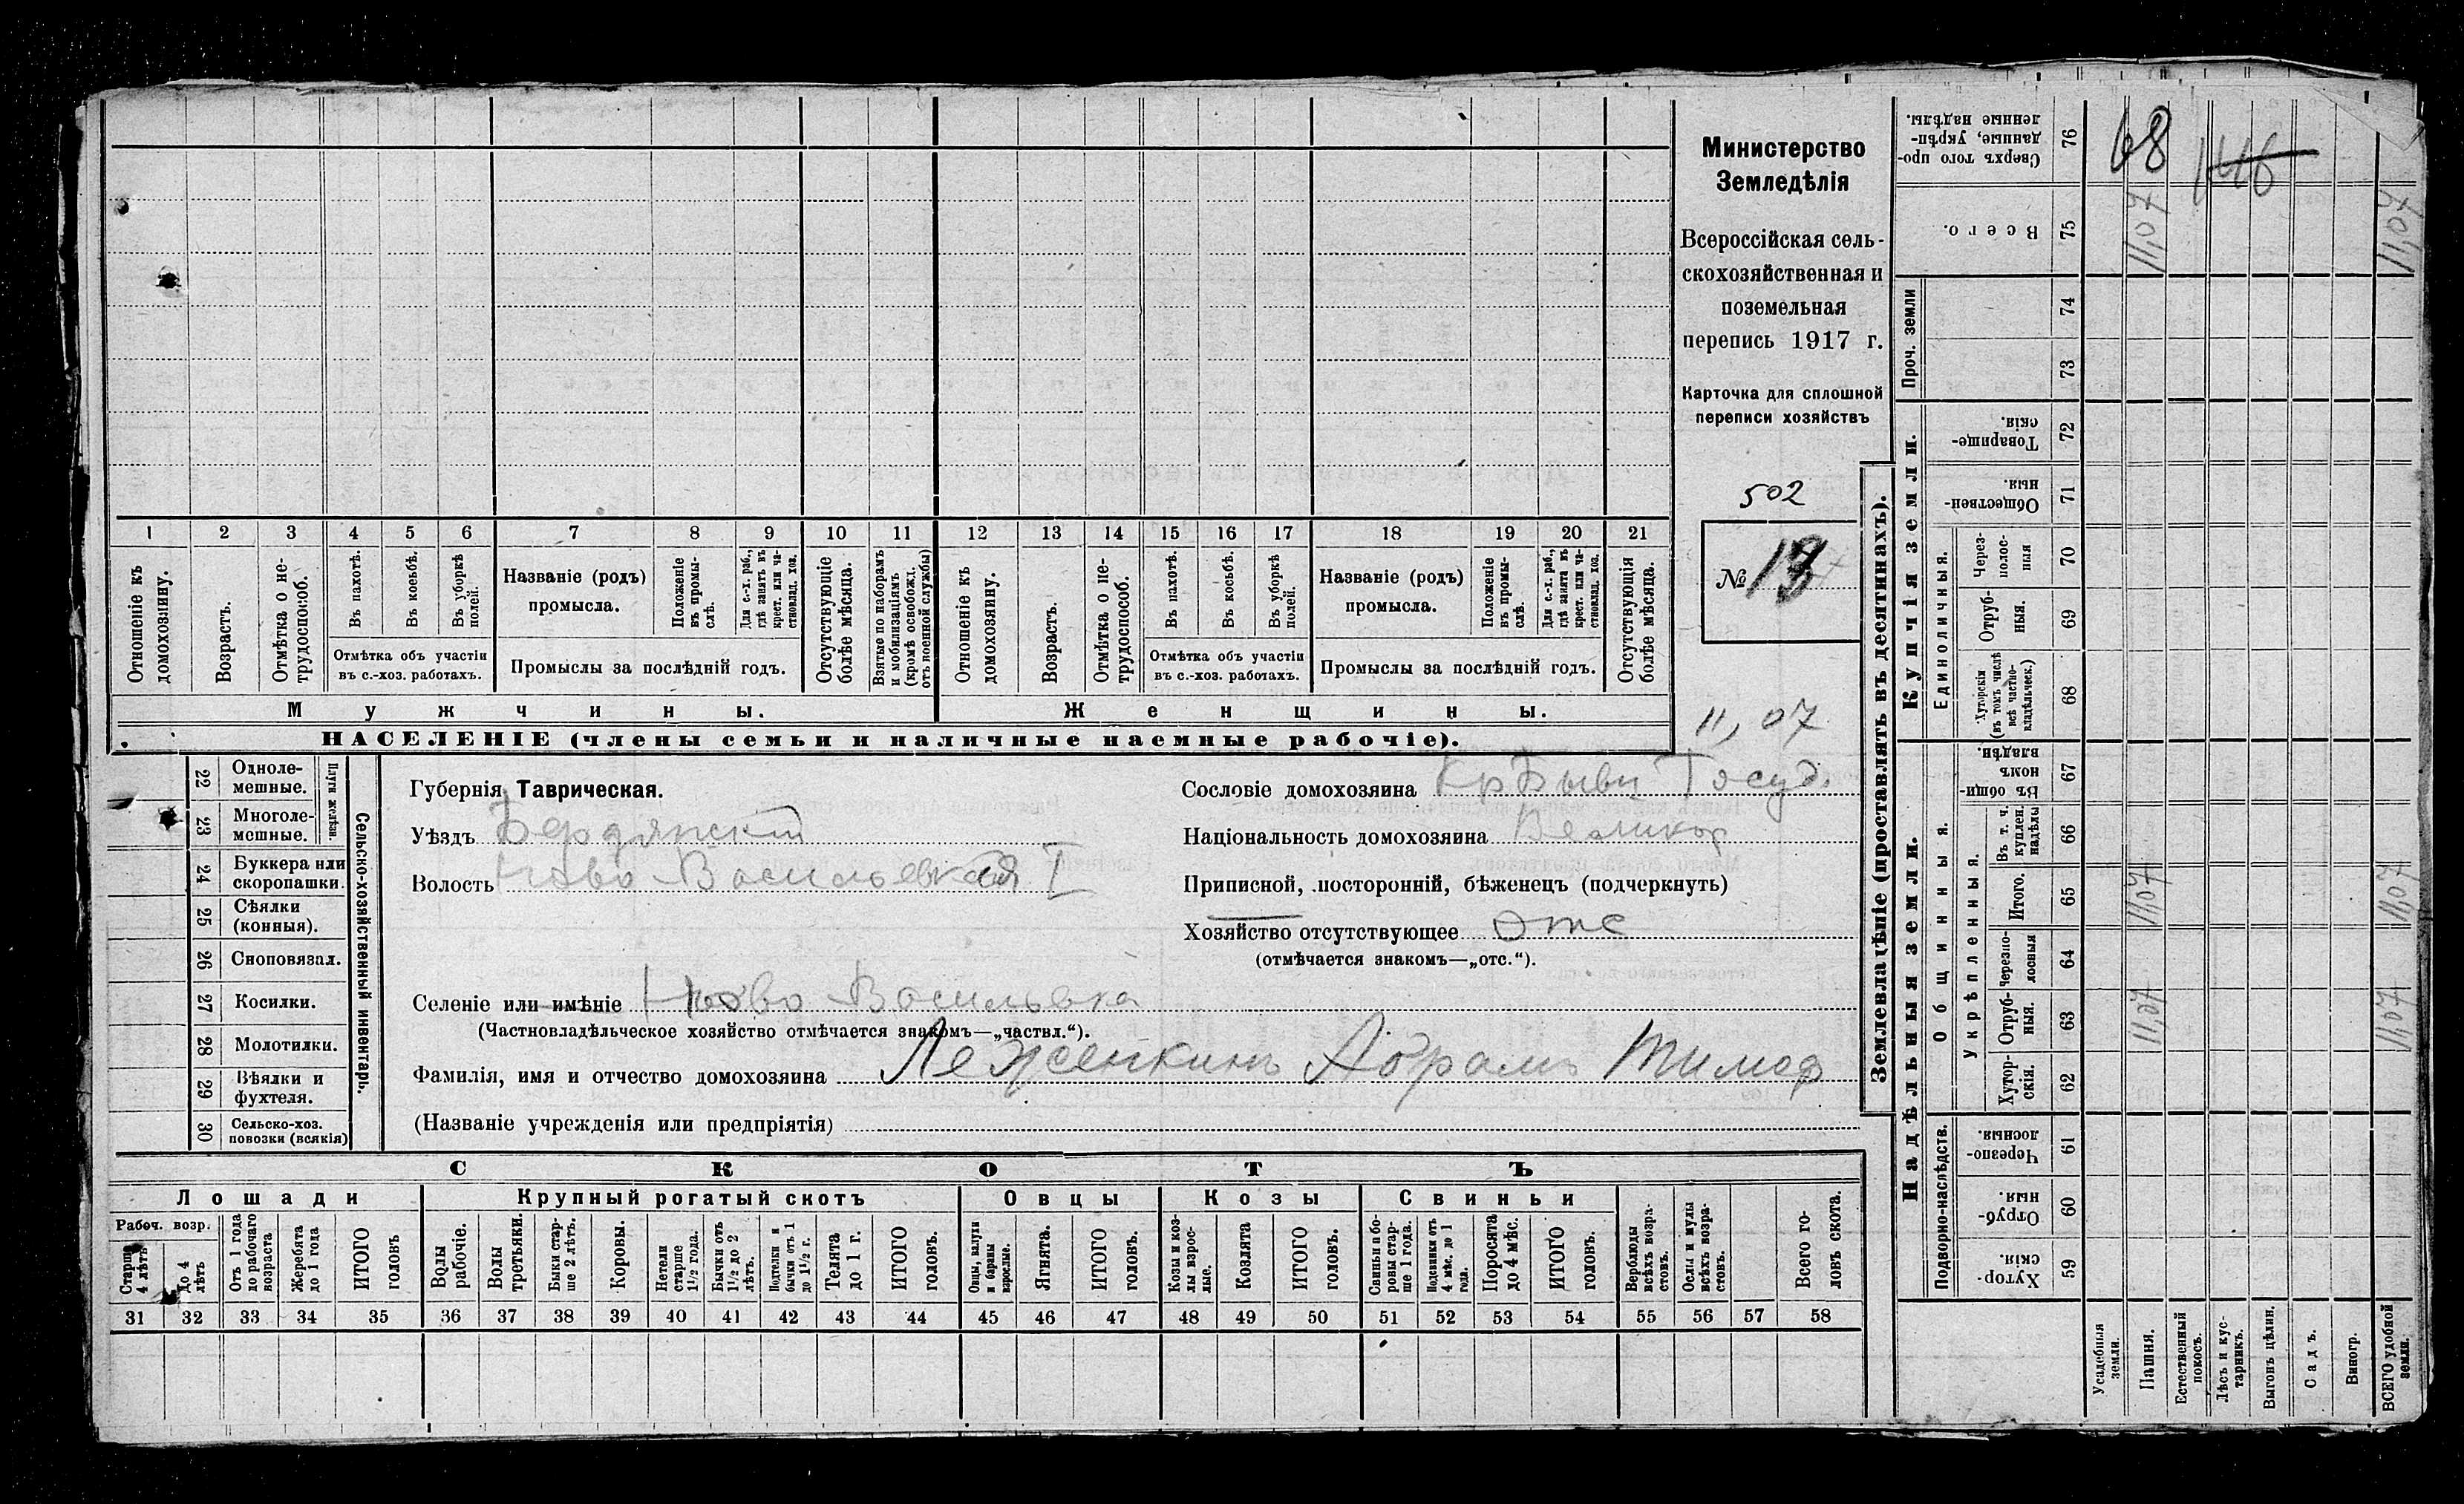 Министерство
Земледѣлія
Всероссійская сель-
скохозяйственная и
поземельная
перепись 1917 г.
Карточка для сплошной
переписи хозяйствъ
502
№ 13
11,07
1 2 3 4 5 6 7 8 9 10 11 12 13 14 15 16 17 18 19 20 21
Отношеніе къ домохозяину.
Возрастъ.
Отмѣтка о не-трудоспособ.
Въ пахотѣ.
Въ косьбѣ.
Въ уборкѣ полей.
Отмѣтка объ участіи
въ с.-хоз. работахъ.
Названіе (родъ)
промысла.
Положеніе въ промы-слѣ.
Для с.-х. раб., гдѣ занятъ въ крест. или ча-стновлад. хоз.
Промыслы за послѣдній годъ.
Отсутствующіе болѣе мѣсяца.
Взятые по наборамъ и мобилизаціямъ (кромѣ освобожд. отъ военной службы)
Отношеніе къ домохозяину.
Возрастъ.
Отмѣтка о не-трудоспособ.
Въ пахотѣ.
Въ косьбѣ.
Въ уборкѣ полей.
Отмѣтка объ участіи
въ с.-хоз. работахъ.
Названіе (родъ)
промысла.
Положеніе въ промы-слѣ.
Для с.-х. раб., гдѣ занята въ крест. или ча-стновлад. хоз.
Промыслы за послѣдній годъ.
Отсутствующія болѣе мѣсяца.
Мужчины.
Женщины.
НАСЕЛЕНІЕ (члены семьи и наличные наемные рабочіе).
22 Одноле-мешные.
23 Многоле-мешные.
Плуги желѣзн.
24 Буккера или скоропашки.
25 Сѣялки (конныя).
26 Сноповязал.
27 Косилки.
28 Молотилки.
29 Вѣялки и фухтеля.
30 Сельско-хоз. повозки (всякія)
Сельско-хозяйственный инвентарь.
Губернія Таврическая.
Уѣздъ Бердянскій
Волость Ново Васильевская I
Селеніе или имѣніе Ново Васильевка
(Частновладѣльческое хозяйство отмѣчается знакомъ—„частвл.“).
Фамилія, имя и отчество домохозяина Леженкинъ Абрамъ Тимоф
(Названіе учрежденія или предпріятія)
Сословіе домохозяина Кр Бывш Госуд.
Національность домохозяина Великор
Приписной, посторонній, бѣженецъ (подчеркнуть)
Хозяйство отсутствующее отс
(отмѣчается знакомъ—„отс.“).
СКОТЪ
Лошади
Крупный рогатый скотъ
Овцы
Козы
Свиньи
Рабоч. возр.
Старше 4 лѣтъ
До 4 лѣтъ
Отъ 1 года до рабочаго возраста
Жеребята до 1 года
ИТОГО головъ
Волы рабочіе.
Волы третьяки.
Быки стар-ше 2 лѣтъ.
Коровы.
Нетели старше 1½ года.
Бычки отъ 1½ до 2 лѣтъ.
Подтелки и бычки отъ 1 до 1½ г.
Телята до 1 г.
ИТОГО головъ.
Овцы, валухи и бараны взрослые.
Ягнята.
ИТОГО головъ.
Козы и коз-лы взрос-лые.
Козлята
ИТОГО головъ.
Свиньи и бо-ровы стар-ше 1 года.
Подсвинки отъ 4 мѣс. до 1 года.
Поросята до 4 мѣс.
ИТОГО головъ.
Верблюды всѣхъ возра-стовъ.
Ослы и мулы всѣхъ возра-стовъ.
Всего го-ловъ скота.
31 32 33 34 35 36 37 38 39 40 41 42 43 44 45 46 47 48 49 50 51 52 53 54 55 56 57 58
Землевладѣніе (проставлять въ десятинахъ).
Надѣльныя земли.
Купчія земли.
Проч. земли
Подворно-наслѣдств.
Общинныя.
Укрѣпленныя.
Единоличныя.
Сверхъ того про-данные, укрѣп-ленные надѣлы. 76
68
146
Всего. 75 11,07 11,07
74
73
Товарище-скія. 72
Обществен-ныя. 71
Через-полос-ныя 70
Отруб-ныя. 69
Хуторскія (въ томъ числѣ всѣ частно-владѣльческ.) 68
Въ общин-номъ владѣн. 67
Въ т. ч. куплен. надѣлы 66
Итого. 65 11,07 11,07
Черезпо-лосныя 64
Отруб-ныя. 63 11,07 11,07
Хутор-скія. 62
Черезпо-лосныя. 61
Отруб-ныя. 60
Хутор-скія. 59
Усадебныя земли.
Пашня.
Естественный покосъ.
Лѣсъ и кус-тарникъ.
Выгонъ цѣлин.
Садъ.
Виногр.
ВСЕГО удобной земли.